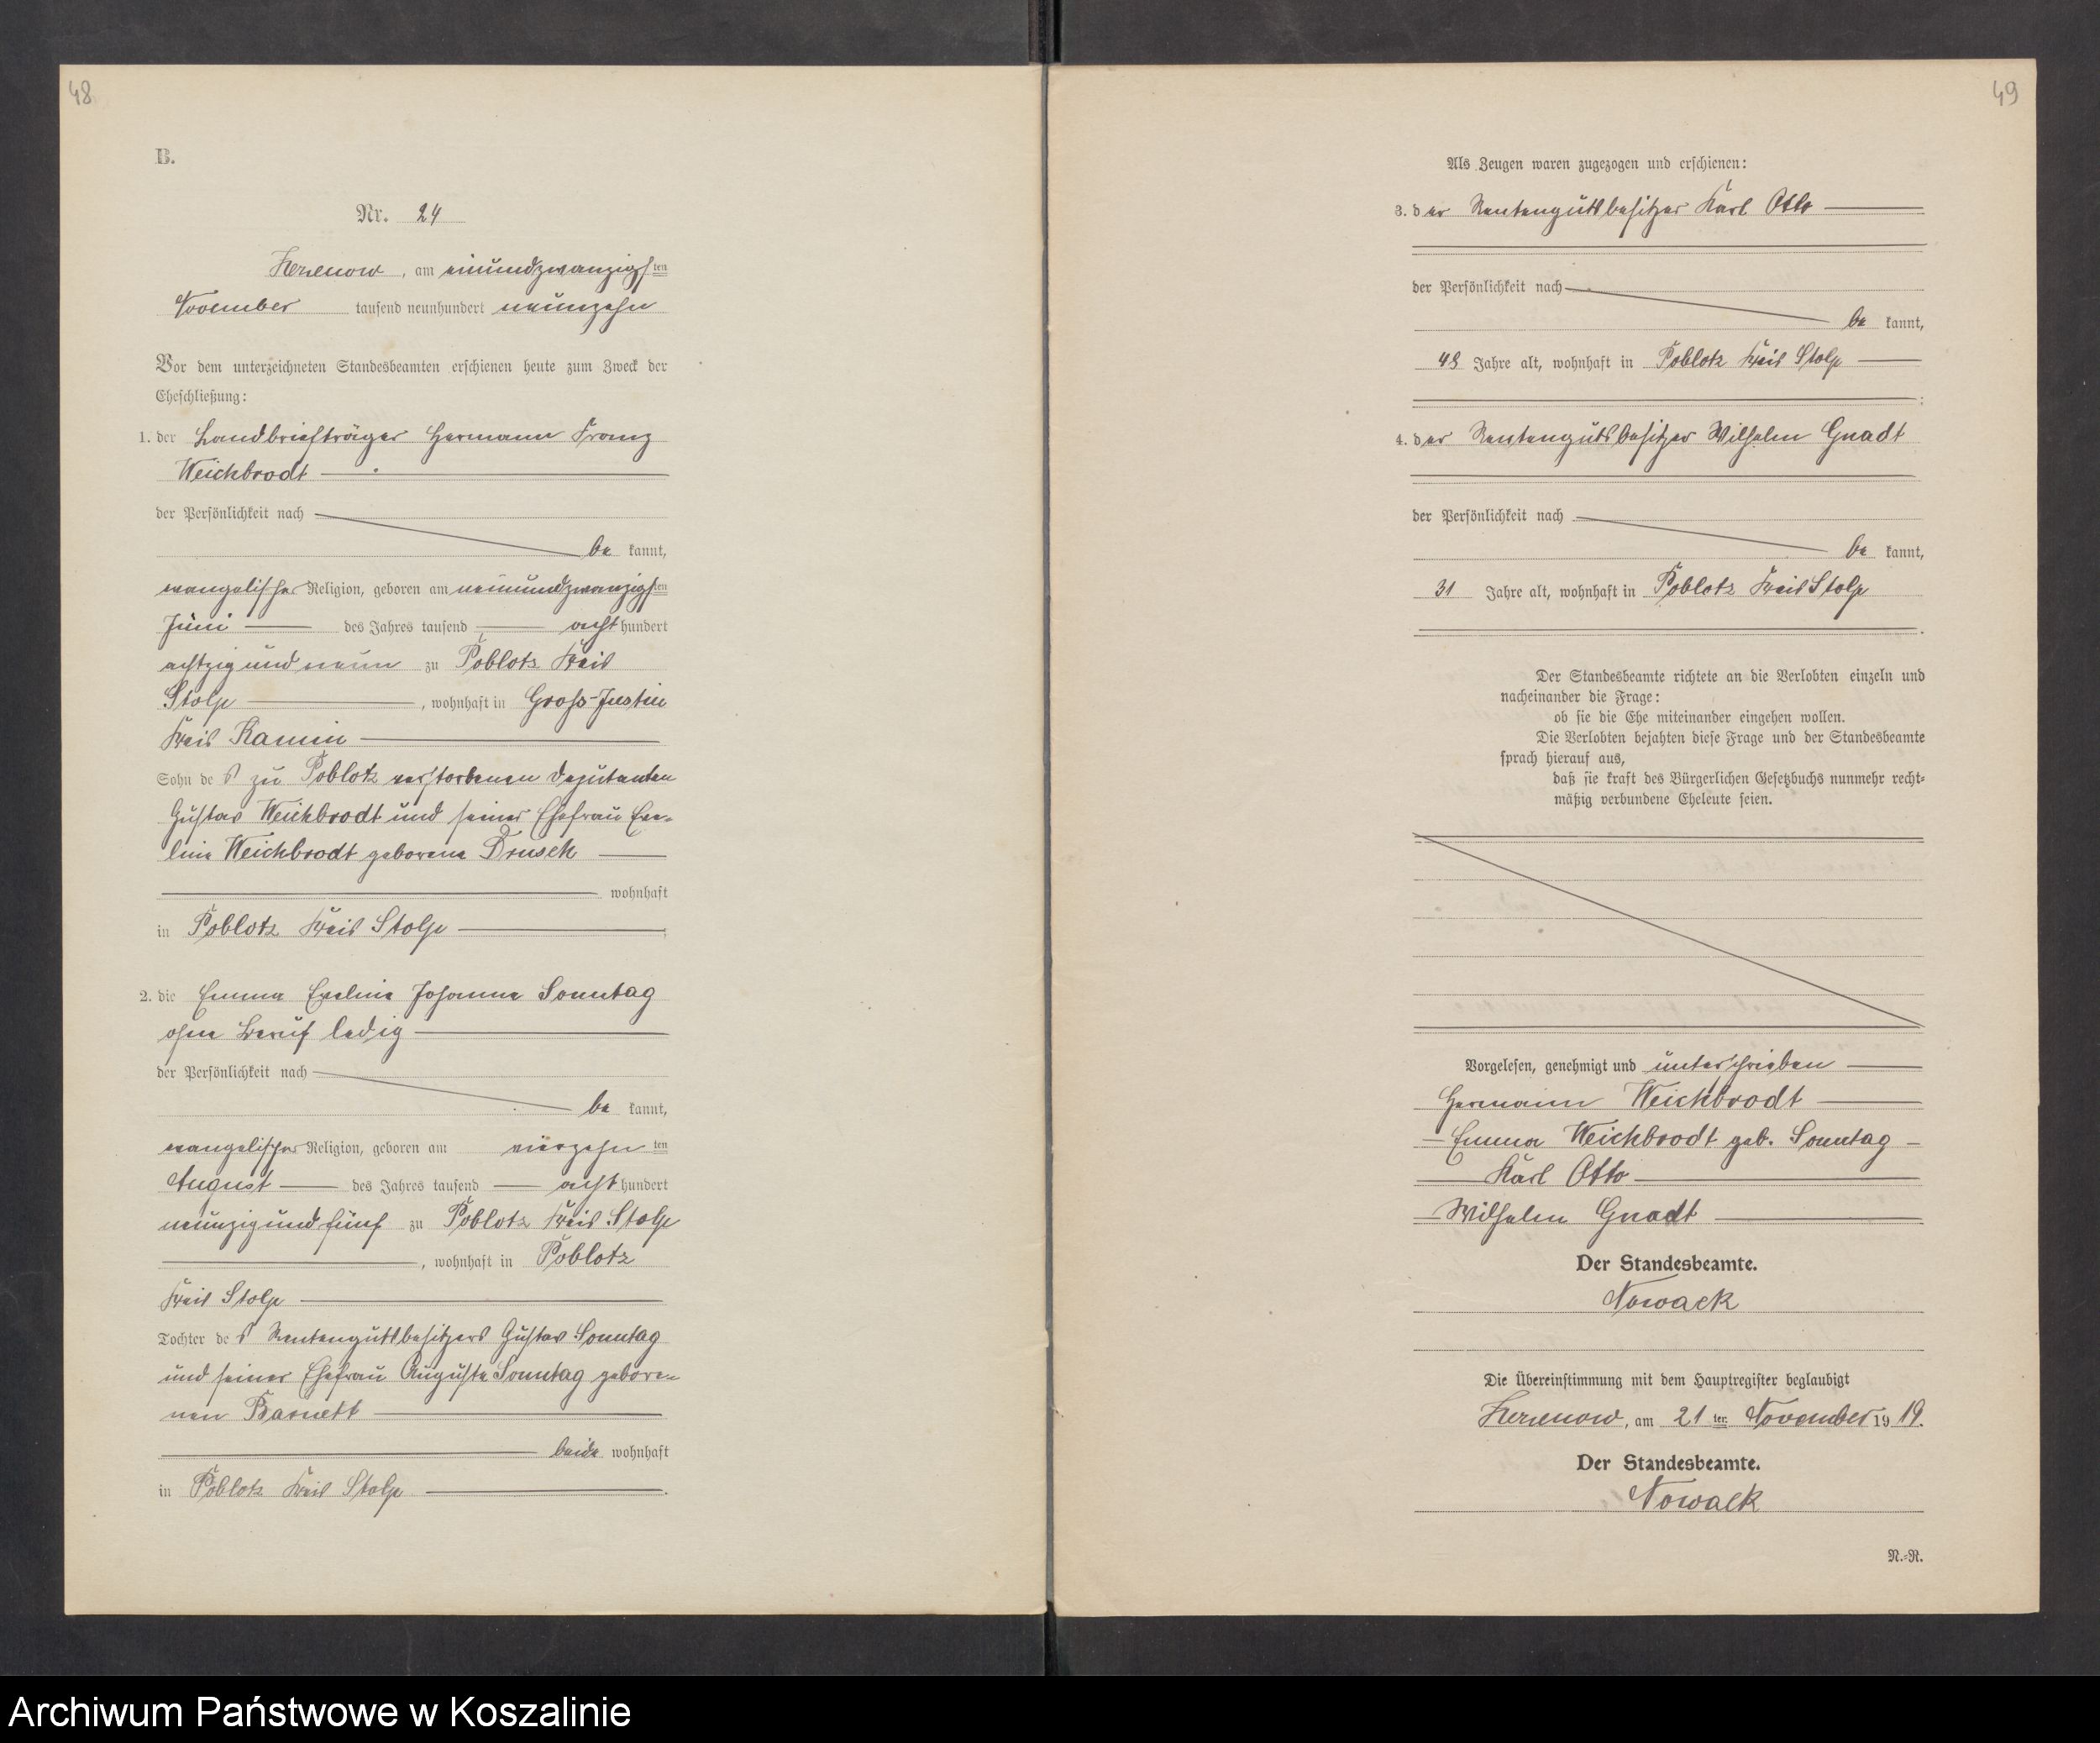 48
B.
Nr. 24
Zezenow, am einundzwanzigsten
November tausend neunhundert neunzehn
Vor dem unterzeichneten Standesbeamten erschienen heute zum Zweck der
Eheschließung:
1. der Landbriefträger Hermann Franz
Weichbrodt
der Persönlichkeit nach
be kannt,
evangelischer Religion, geboren am neunundzwanzigsten
Juni des Jahres tausend acht hundert
achtzig und neun zu Poblotz Kreis
Stolp, wohnhaft in Gross-Justin
Kreis Kamin
Sohn des zu Poblotz verstorbenen Deputanten
Gustav Weichbrodt und seiner Ehefrau Eve-
line Weichbrodt geborene Drusch
wohnhaft
in Poblotz Kreis Stolp;
2. die Emma Eveline Johanna Sonntag
ohne Beruf ledig
der Persönlichkeit nach
be kannt,
evangelischer Religion, geboren am vierzehnten
August des Jahres tausend acht hundert
neunzig und fünf zu Poblotz Kreis Stolp
, wohnhaft in Poblotz
Kreis Stolp
Tochter des Rentengutsbesitzers Gustav Sonntag
und seiner Ehefrau Auguste Sonntag gebore-
nen
beide wohnhaft
in Poblotz Kreis Stolp.
49
Als Zeugen waren zugezogen und erschienen:
3. der Rentengutsbesitzer Karl Otto
der Persönlichkeit nach
be kannt,
48 Jahre alt, wohnhaft in Poblotz Kreis Stolp
;
4. der Rentengutsbesitzer Wilhelm Gnadt
der Persönlichkeit nach
be kannt,
31 Jahre alt, wohnhaft in Poblotz Kreis Stolp
.
Der Standesbeamte richtete an die Verlobten einzeln und
nacheinander die Frage:
ob sie die Ehe miteinander eingehen wollen.
Die Verlobten bejahten diese Frage und der Standesbeamte
sprach hierauf aus,
daß sie kraft des Bürgerlichen Gesetzbuchs nunmehr recht-
mäßig verbundene Eheleute seien.
Vorgelesen, genehmigt und unterschrieben
Hermann Weichbrodt
Emma Weichbrodt geb. Sonntag
Karl Otto
Wilhelm Gnadt
Der Standesbeamte.
Nowack
Die Übereinstimmung mit dem Hauptregister beglaubigt
Zezenow, am 21 ten November 1919.
Der Standesbeamte.
Nowack
N.-R.
Archiwum Państwowe w Koszalinie